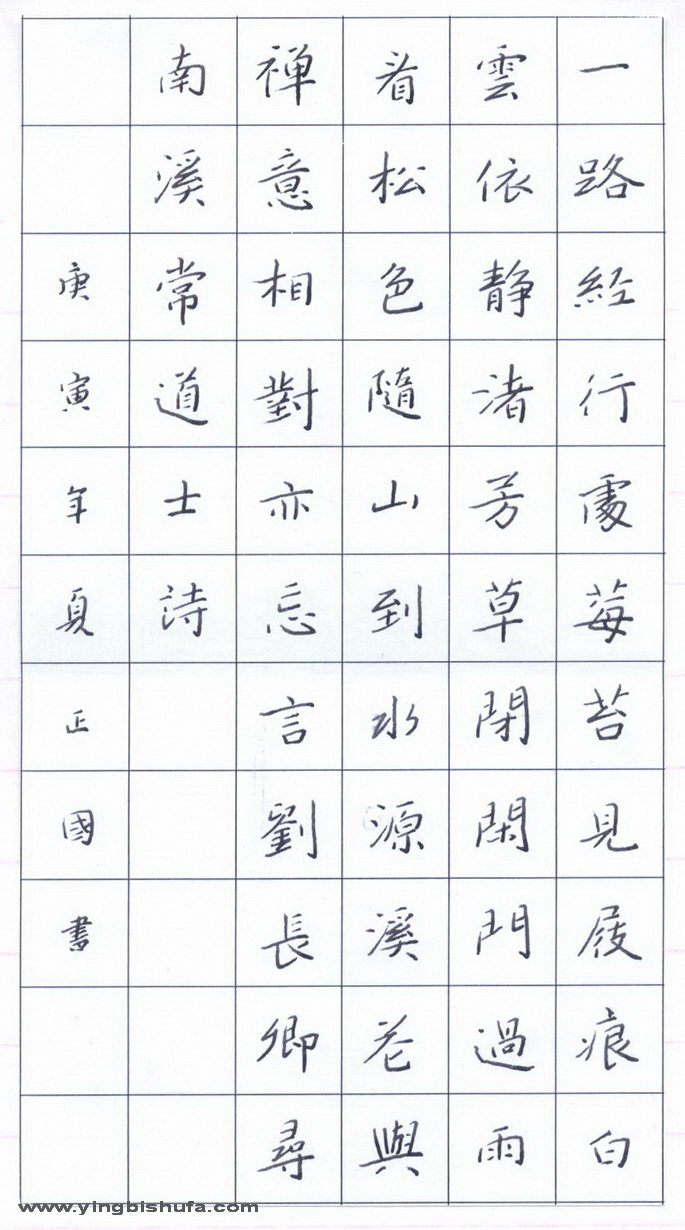 一路經行處莓苔見屐痕白
雲依靜渚芳草閉閑門過雨
看松色隨山到水源溪花與
禅意相對亦忘言劉長卿尋
南溪常道士詩
庚寅年夏正國書
www.yingbishufa.com